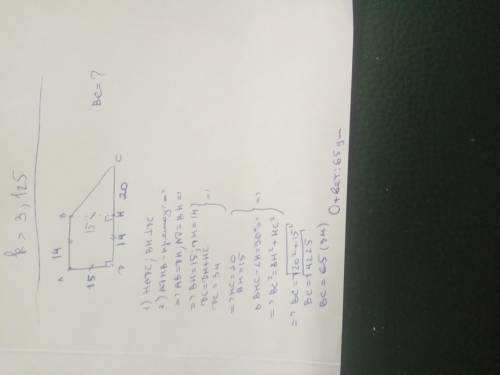 k > 3,125
A 14 B
15 15
D 14 H 20 C
BC = ?
1) H∈DC, BH⊥DC
2) ADHB - прямоуг =>
=> AB = DH, AD = BH =>
=> BH = 15; DH = 14
DC = DH + HC
DC = 34
=> HC = 20
BH = 15
Δ BHC - ∠H = 90° =>
=> BC² = BH² + HC²
=> BC = √20² + 15²
BC = √4225
BC = 65 (ум)
Ответ: 65 ум